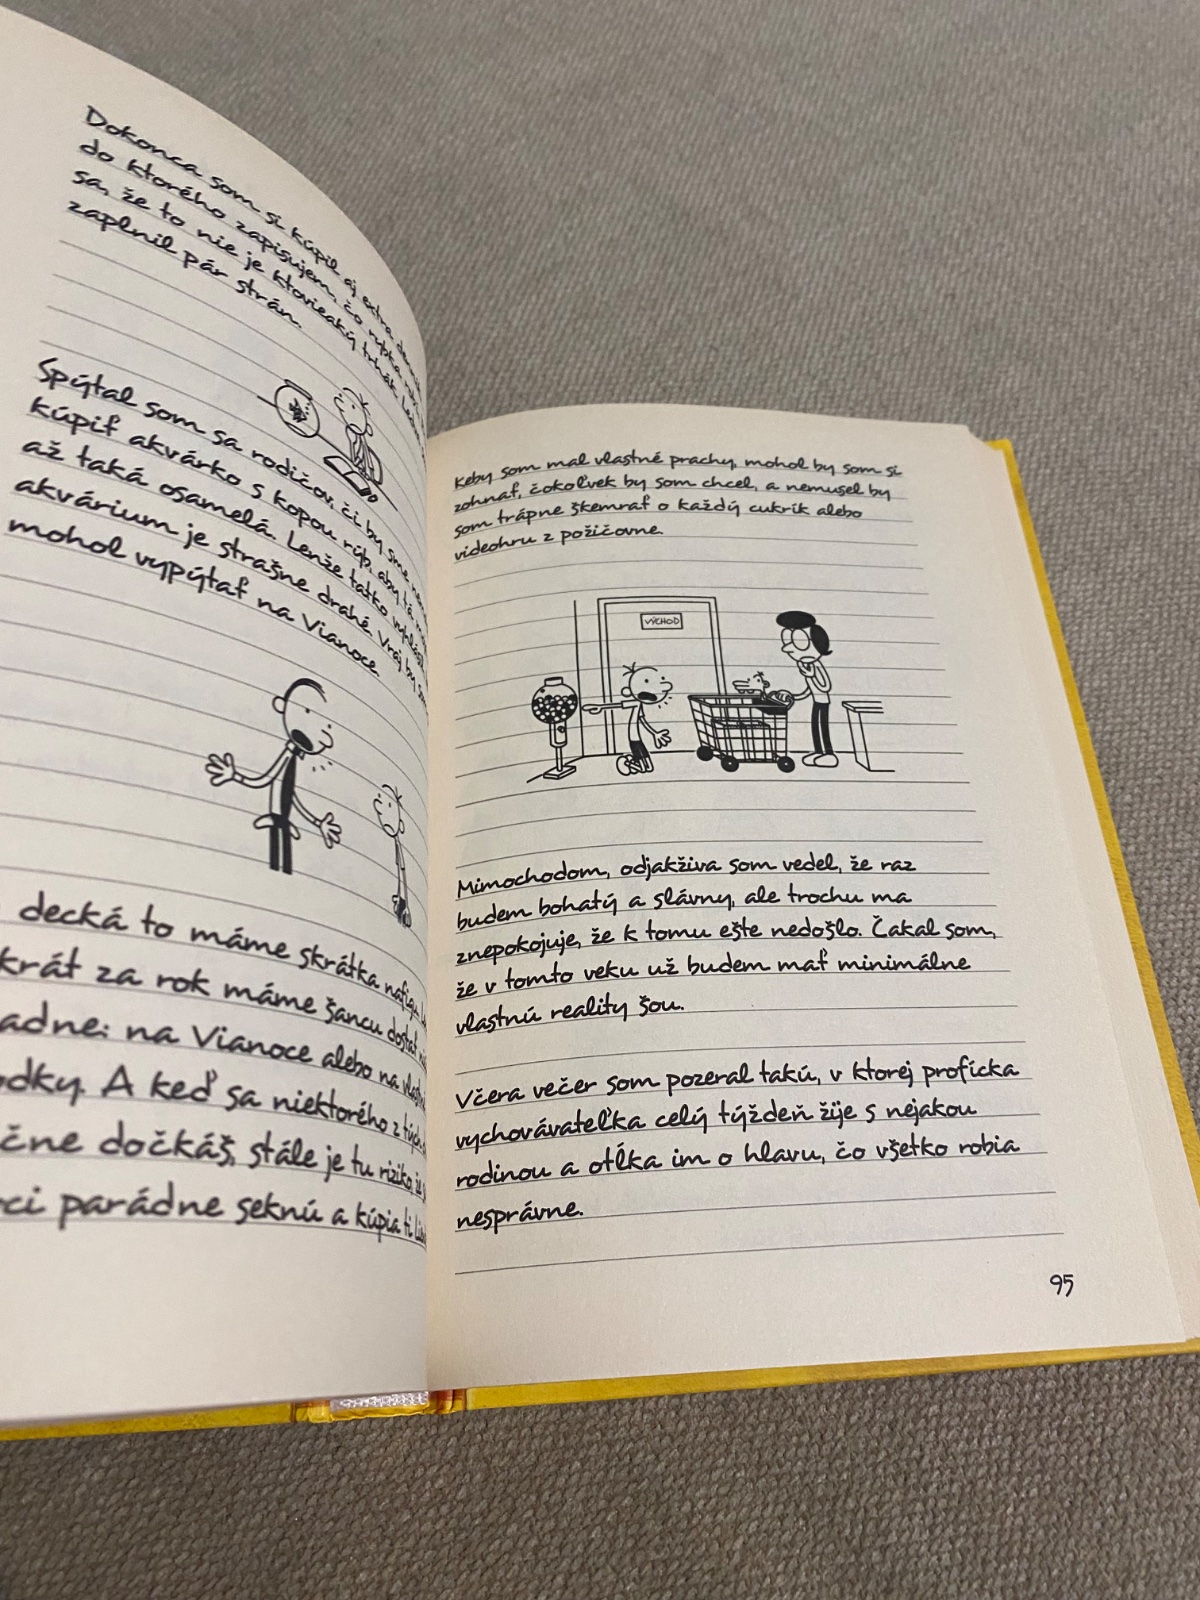 Dokonca som si kúpil aj extra denník,
do ktorého zapisujem, čo rybka robí,
sa, že to nie je ktovieaký trhák. Len
zaplnil pár strán.
Spýtal som sa rodičov, či by sme
kúpiť akvárko s kopou rýb, aby tá
až taká osamelá. Lenže tatko vyhlásil
akvárium je strašne drahé. Vraj by
mohol vypýtať na Vianoce.
decká to máme skrátka nafigu
krát za rok máme šancu dostať
adne: na Vianoce alebo na
odky. A keď sa niektorého z tých
čne dočkáš, stále je tu riziko, že
ci parádne seknú a kúpia ti
Keby som mal vlastné prachy, mohol by som si
zohnať, čokoľvek by som chcel, a nemusel by
som trápne škemrať o každý cukrík alebo
videohru z požičovne.
VÝCHOD
Mimochodom, odjakživa som vedel, že raz
budem bohatý a slávny, ale trochu ma
znepokojuje, že k tomu ešte nedošlo. Čakal som,
že v tomto veku už budem mať minimálne
vlastnú reality šou.
Včera večer som pozeral takú, v ktorej profícka
vychovávateľka celý týždeň žije s nejakou
rodinou a otĺka im o hlavu, čo všetko robia
nesprávne.
95